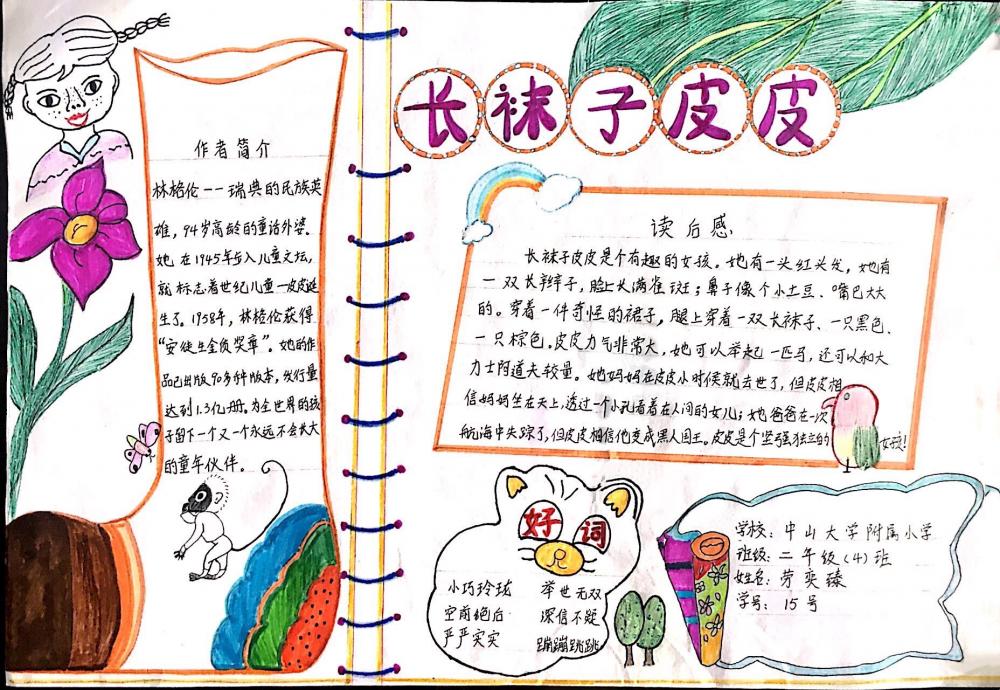 长袜子皮皮
作者简介
林格伦——瑞典的民族英
雄，94岁高龄的童话外婆。
她在1945年步入儿童文坛，
就标志着世纪儿童—皮皮诞
生了。1958年，林格伦获得
“安徒生金质奖章”。她的作
品已出版90多种版本，发行量
达到1.3亿册。为全世界的孩
子留下一个又一个永远不会长大
的童年伙伴。
读后感
长袜子皮皮是个有趣的女孩。她有一头红头发，她有
一双长辫子，脸上长满雀斑；鼻子像个小土豆、嘴巴大大
的。穿着一件奇怪的裙子，腿上穿着一双长袜子、一只黑色、
一只棕色。皮皮力气非常大，她可以举起一匹马，还可以和大
力士阿道夫较量。她妈妈在皮皮小时侯就去世了，但皮皮相
信妈妈坐在天上，透过一个小孔看着在人间的女儿；她爸爸在一次
航海中失踪了，但皮皮相信他变成黑人国王。皮皮是个坚强独立的
女孩！
好词
小巧玲珑 举世无双
空前绝后 深信不疑
严严实实 蹦蹦跳跳
学校：中山大学附属小学
班级：二年级（4）班
姓名：劳奕臻
学号：15号